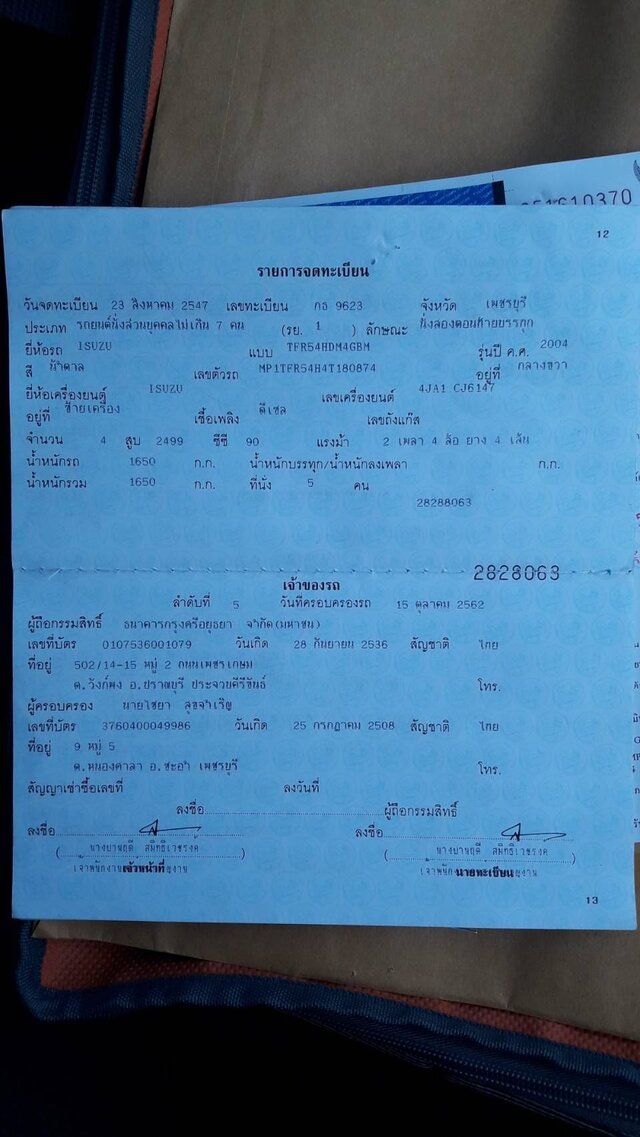 051610370
12
รายการจดทะเบียน
วันจดทะเบียน 23 สิงหาคม 2547 เลขทะเบียน กธ 9623 จังหวัด เพชรบุรี
ประเภท รถยนต์นั่งส่วนบุคคลไม่เกิน 7 คน (รย. 1 ) ลักษณะ นั่งสองตอนท้ายบรรทุก
ยี่ห้อรถ ISUZU แบบ TFR54HDM4GBM รุ่นปี ค.ศ. 2004
สี น้ำตาล เลขตัวรถ MP1TFR54H4T180874 อยู่ที่ กลางขวา
ยี่ห้อเครื่องยนต์ ISUZU เลขเครื่องยนต์ 4JA1 CJ6147
อยู่ที่ ซ้ายเครื่อง เชื้อเพลิง ดีเซล เลขถังแก๊ส
จำนวน 4 สูบ 2499 ซีซี 90 แรงม้า 2 เพลา 4 ล้อ ยาง 4 เส้น
น้ำหนักรถ 1650 ก.ก. น้ำหนักบรรทุก/น้ำหนักลงเพลา ก.ก.
น้ำหนักรวม 1650 ก.ก. ที่นั่ง 5 คน
28288063
2828063
เจ้าของรถ
ลำดับที่ 5 วันที่ครอบครองรถ 15 ตุลาคม 2562
ผู้ถือกรรมสิทธิ์ ธนาคารกรุงศรีอยุธยา จำกัด(มหาชน)
เลขที่บัตร 0107536001079 วันเกิด 28 กันยายน 2536 สัญชาติ ไทย
ที่อยู่ 502/14-15 หมู่ 2 ถนนเพชรเกษม
ต.วังก์พง อ.ปราณบุรี ประจวบคีรีขันธ์ โทร.
ผู้ครอบครอง นายไชยา สุขจำเริญ
เลขที่บัตร 3760400049986 วันเกิด 25 กรกฎาคม 2508 สัญชาติ ไทย
ที่อยู่ 9 หมู่ 5
ต.หนองศาลา อ.ชะอำ เพชรบุรี โทร.
สัญญาเช่าซื้อเลขที่ ลงวันที่
ลงชื่อ ผู้ถือกรรมสิทธิ์
ลงชื่อ ลงชื่อ
( นางปานฤดี สมิทธิเวชรงค์ ) ( นางปานฤดี สมิทธิเวชรงค์ )
เจ้าพนักงาน เจ้าหน้าที่ เจ้าพนักงาน นายทะเบียน
13